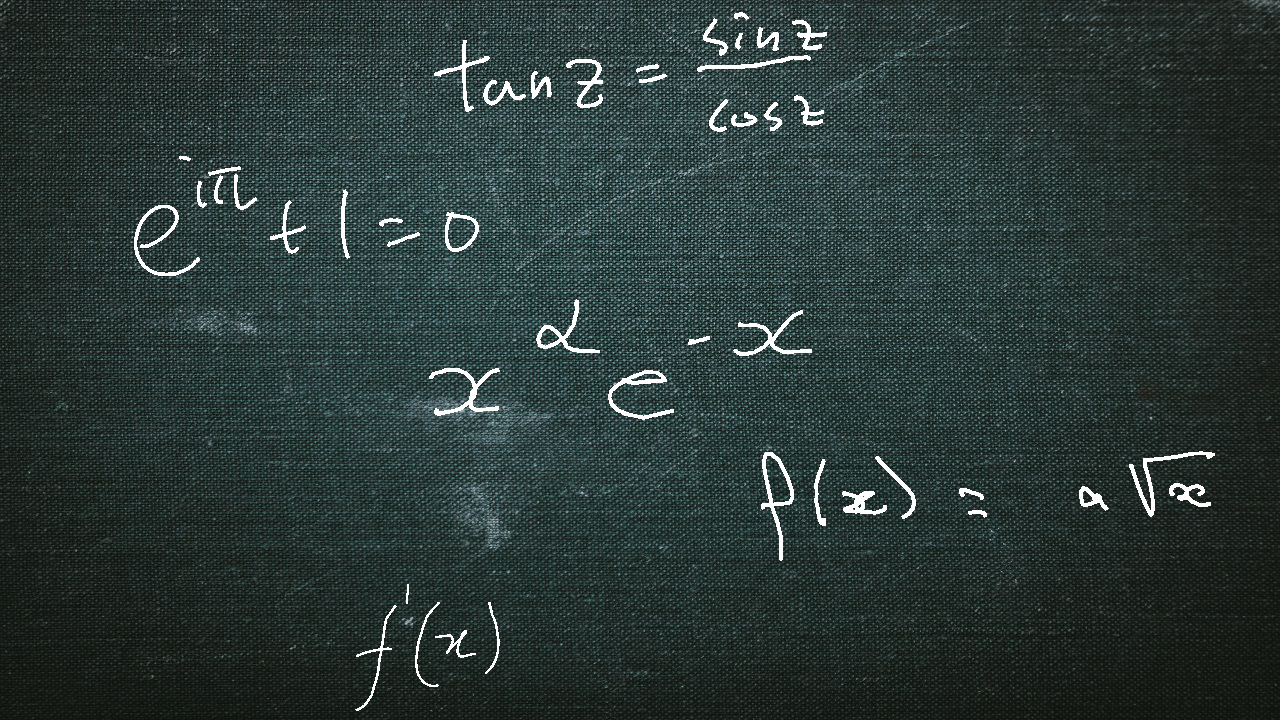 tan z = sin z / cos z
e^{iπ} + 1 = 0
x^α e^{-x}
f(x) = a√x
f'(x)